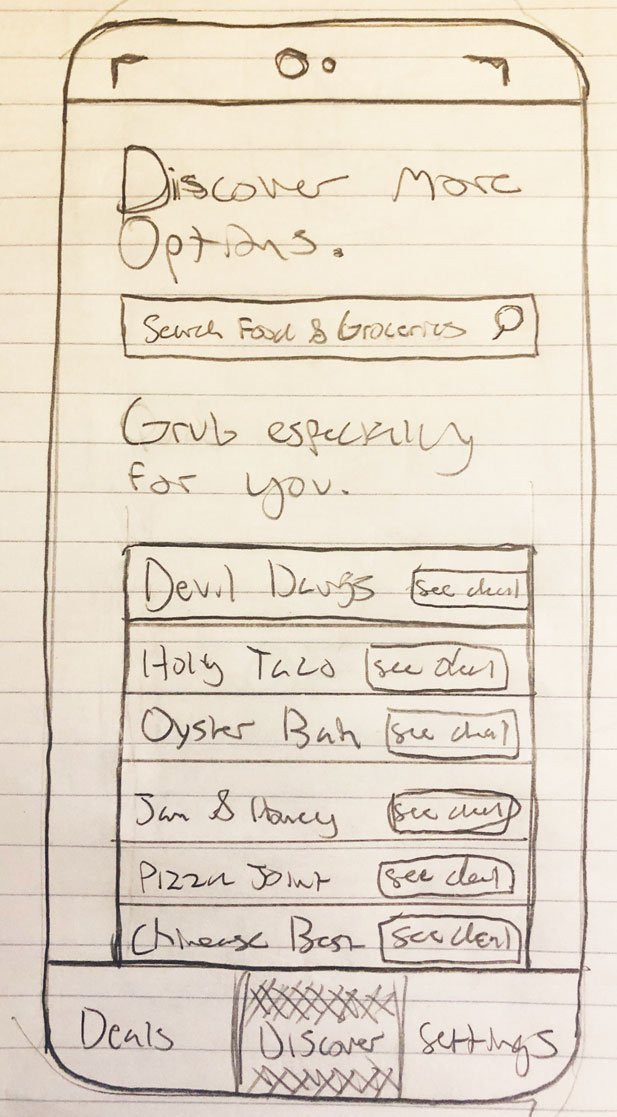 Discover More
Options.
Search Food & Groceries
Grub especially
for you.
Devil Dawgs see deal
Holy Taco see deal
Oyster Bah see deal
Jam & Honey see deal
Pizza Joint see deal
Chinease Best see deal
Deals Discover settings